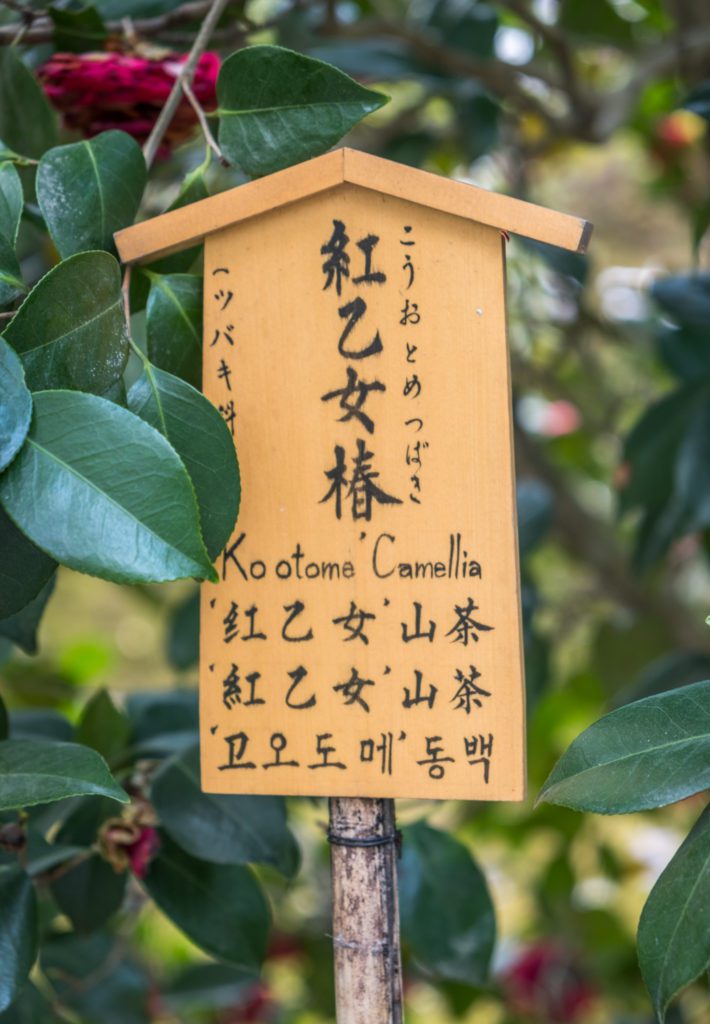 こうおとめつばき
紅乙女椿
(ツバキ科
Ko otome' Camellia
'红乙女'山茶
'紅乙女'山茶
'고오도메' 동백